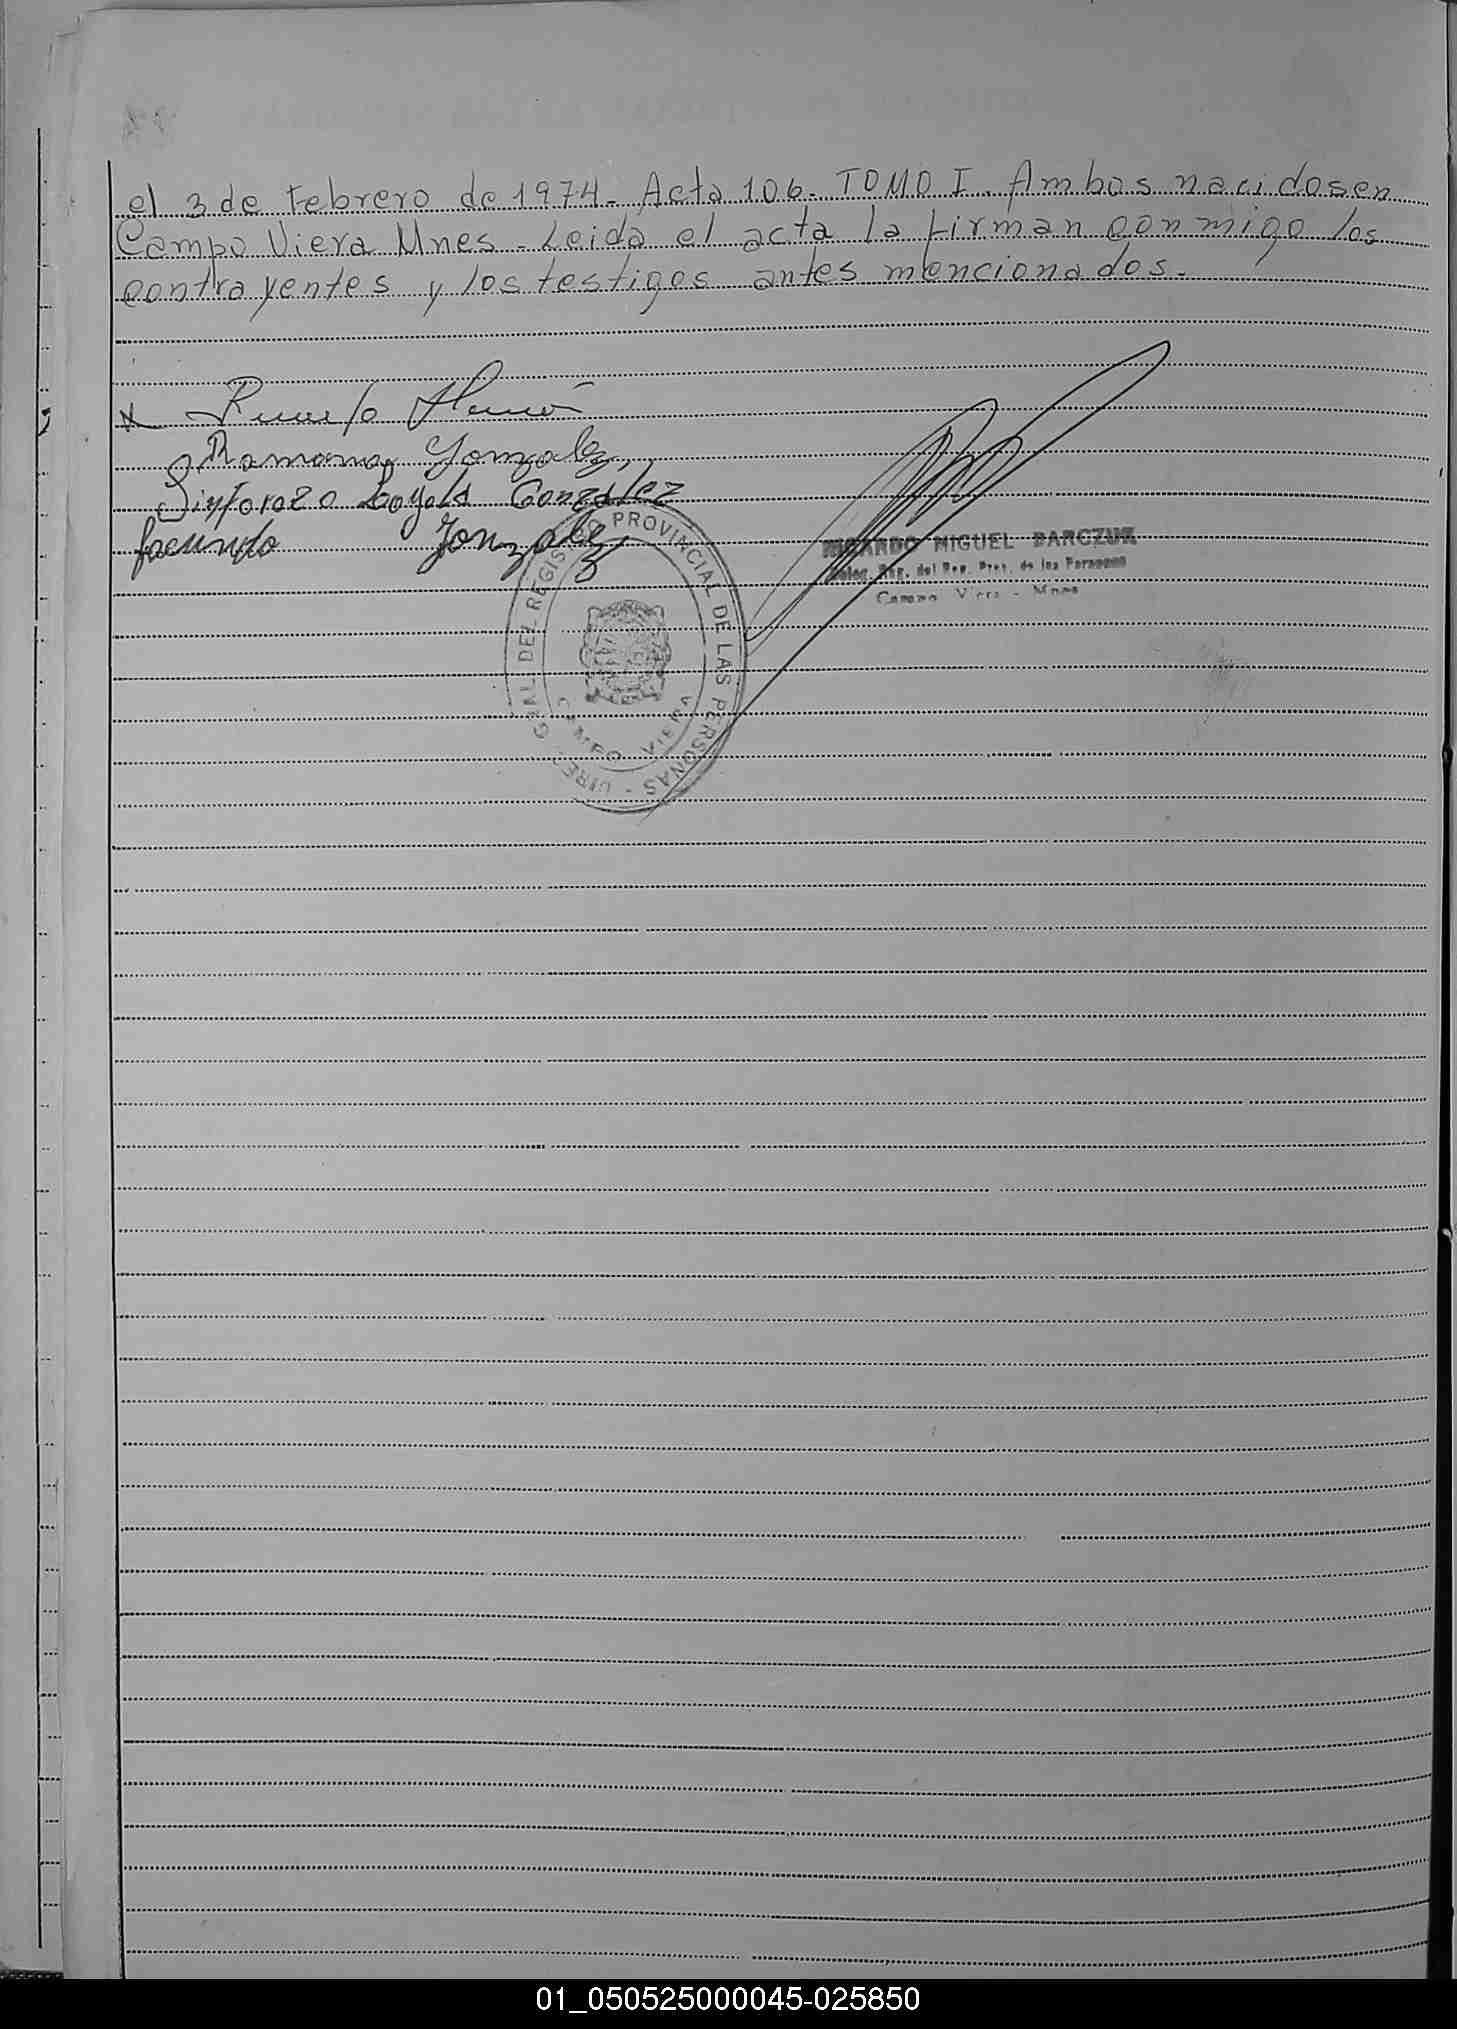 el 3 de febrero de 1974. Acta 106. TOMO I. Ambos nacidos en
Campo Viera Mnes. Leida el acta la firman conmigo los
contrayentes y los testigos antes mencionados.
Ramona Gonzalez
Sinforozo Loyola González
facundo Gonzalez
RICARDO MIGUEL BARCZUK
Deleg. Reg. del Reg. Prov. de las Personas
Campo Viera - Mnes
DIREC. GRAL. DEL REGISTRO PROVINCIAL DE LAS PERSONAS
CAMPO VIERA
01_050525000045-025850